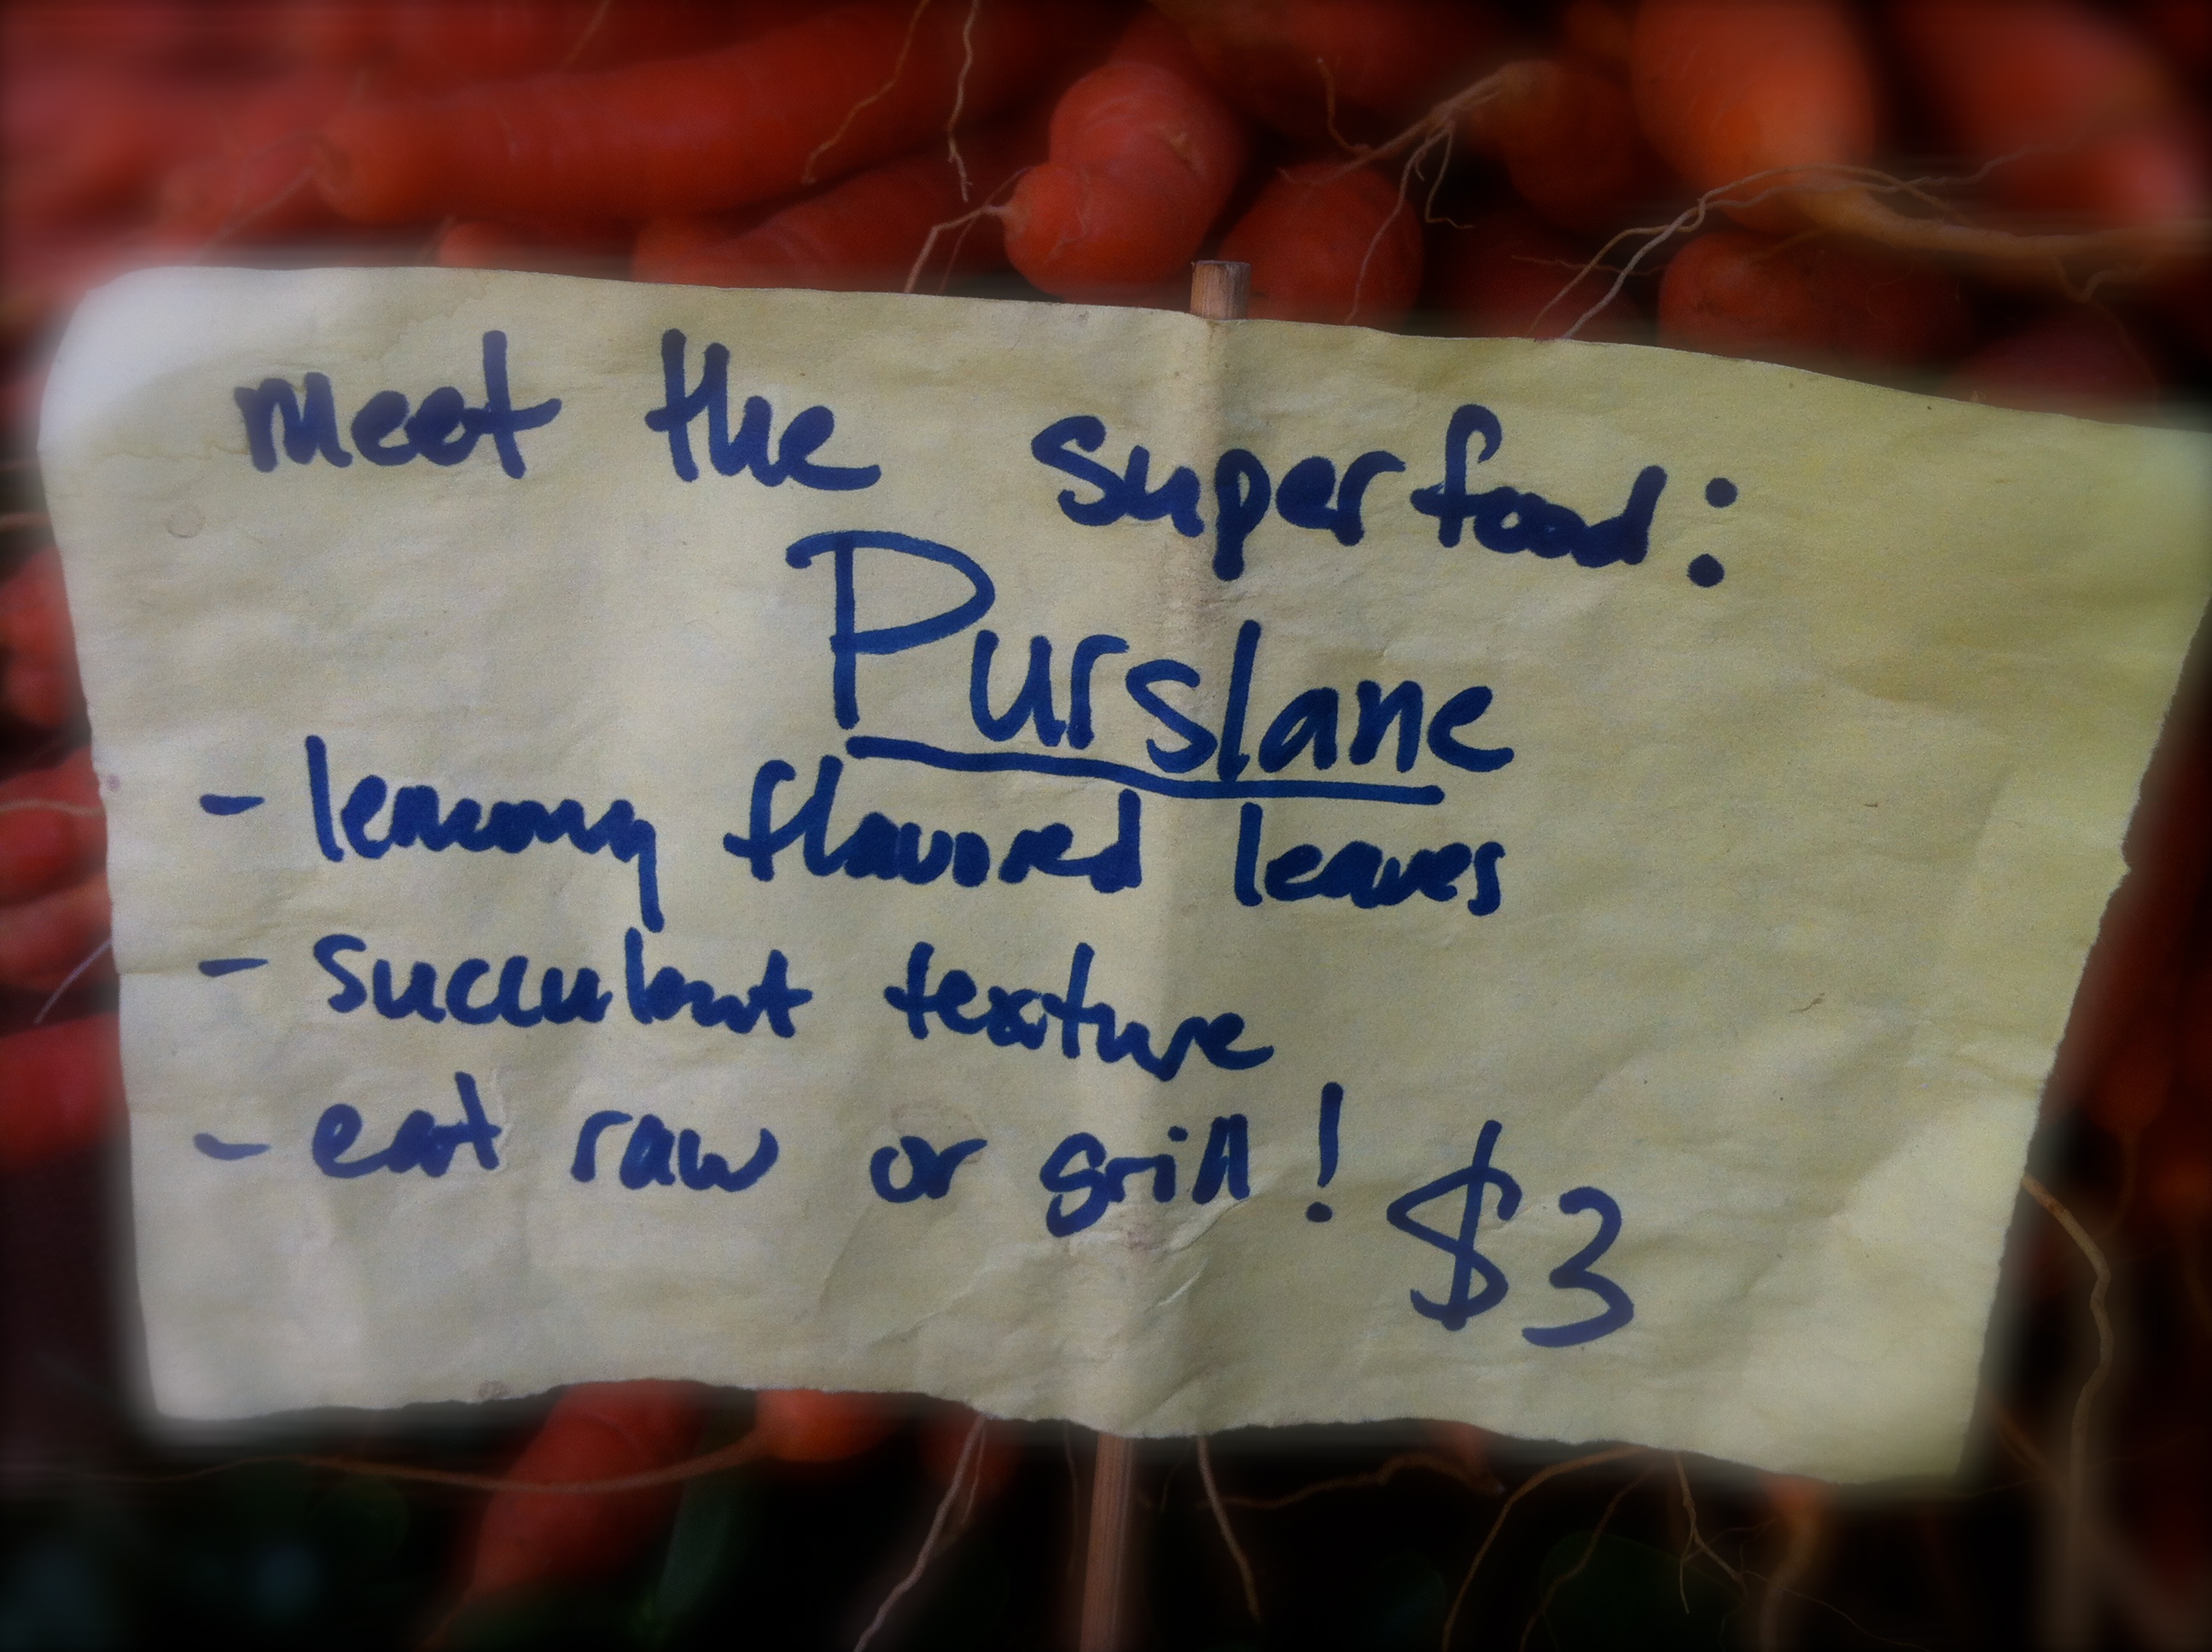 meet the superfood:
Purslane
- lemony flavored leaves
- succulent texture
- eat raw or grill!
$3